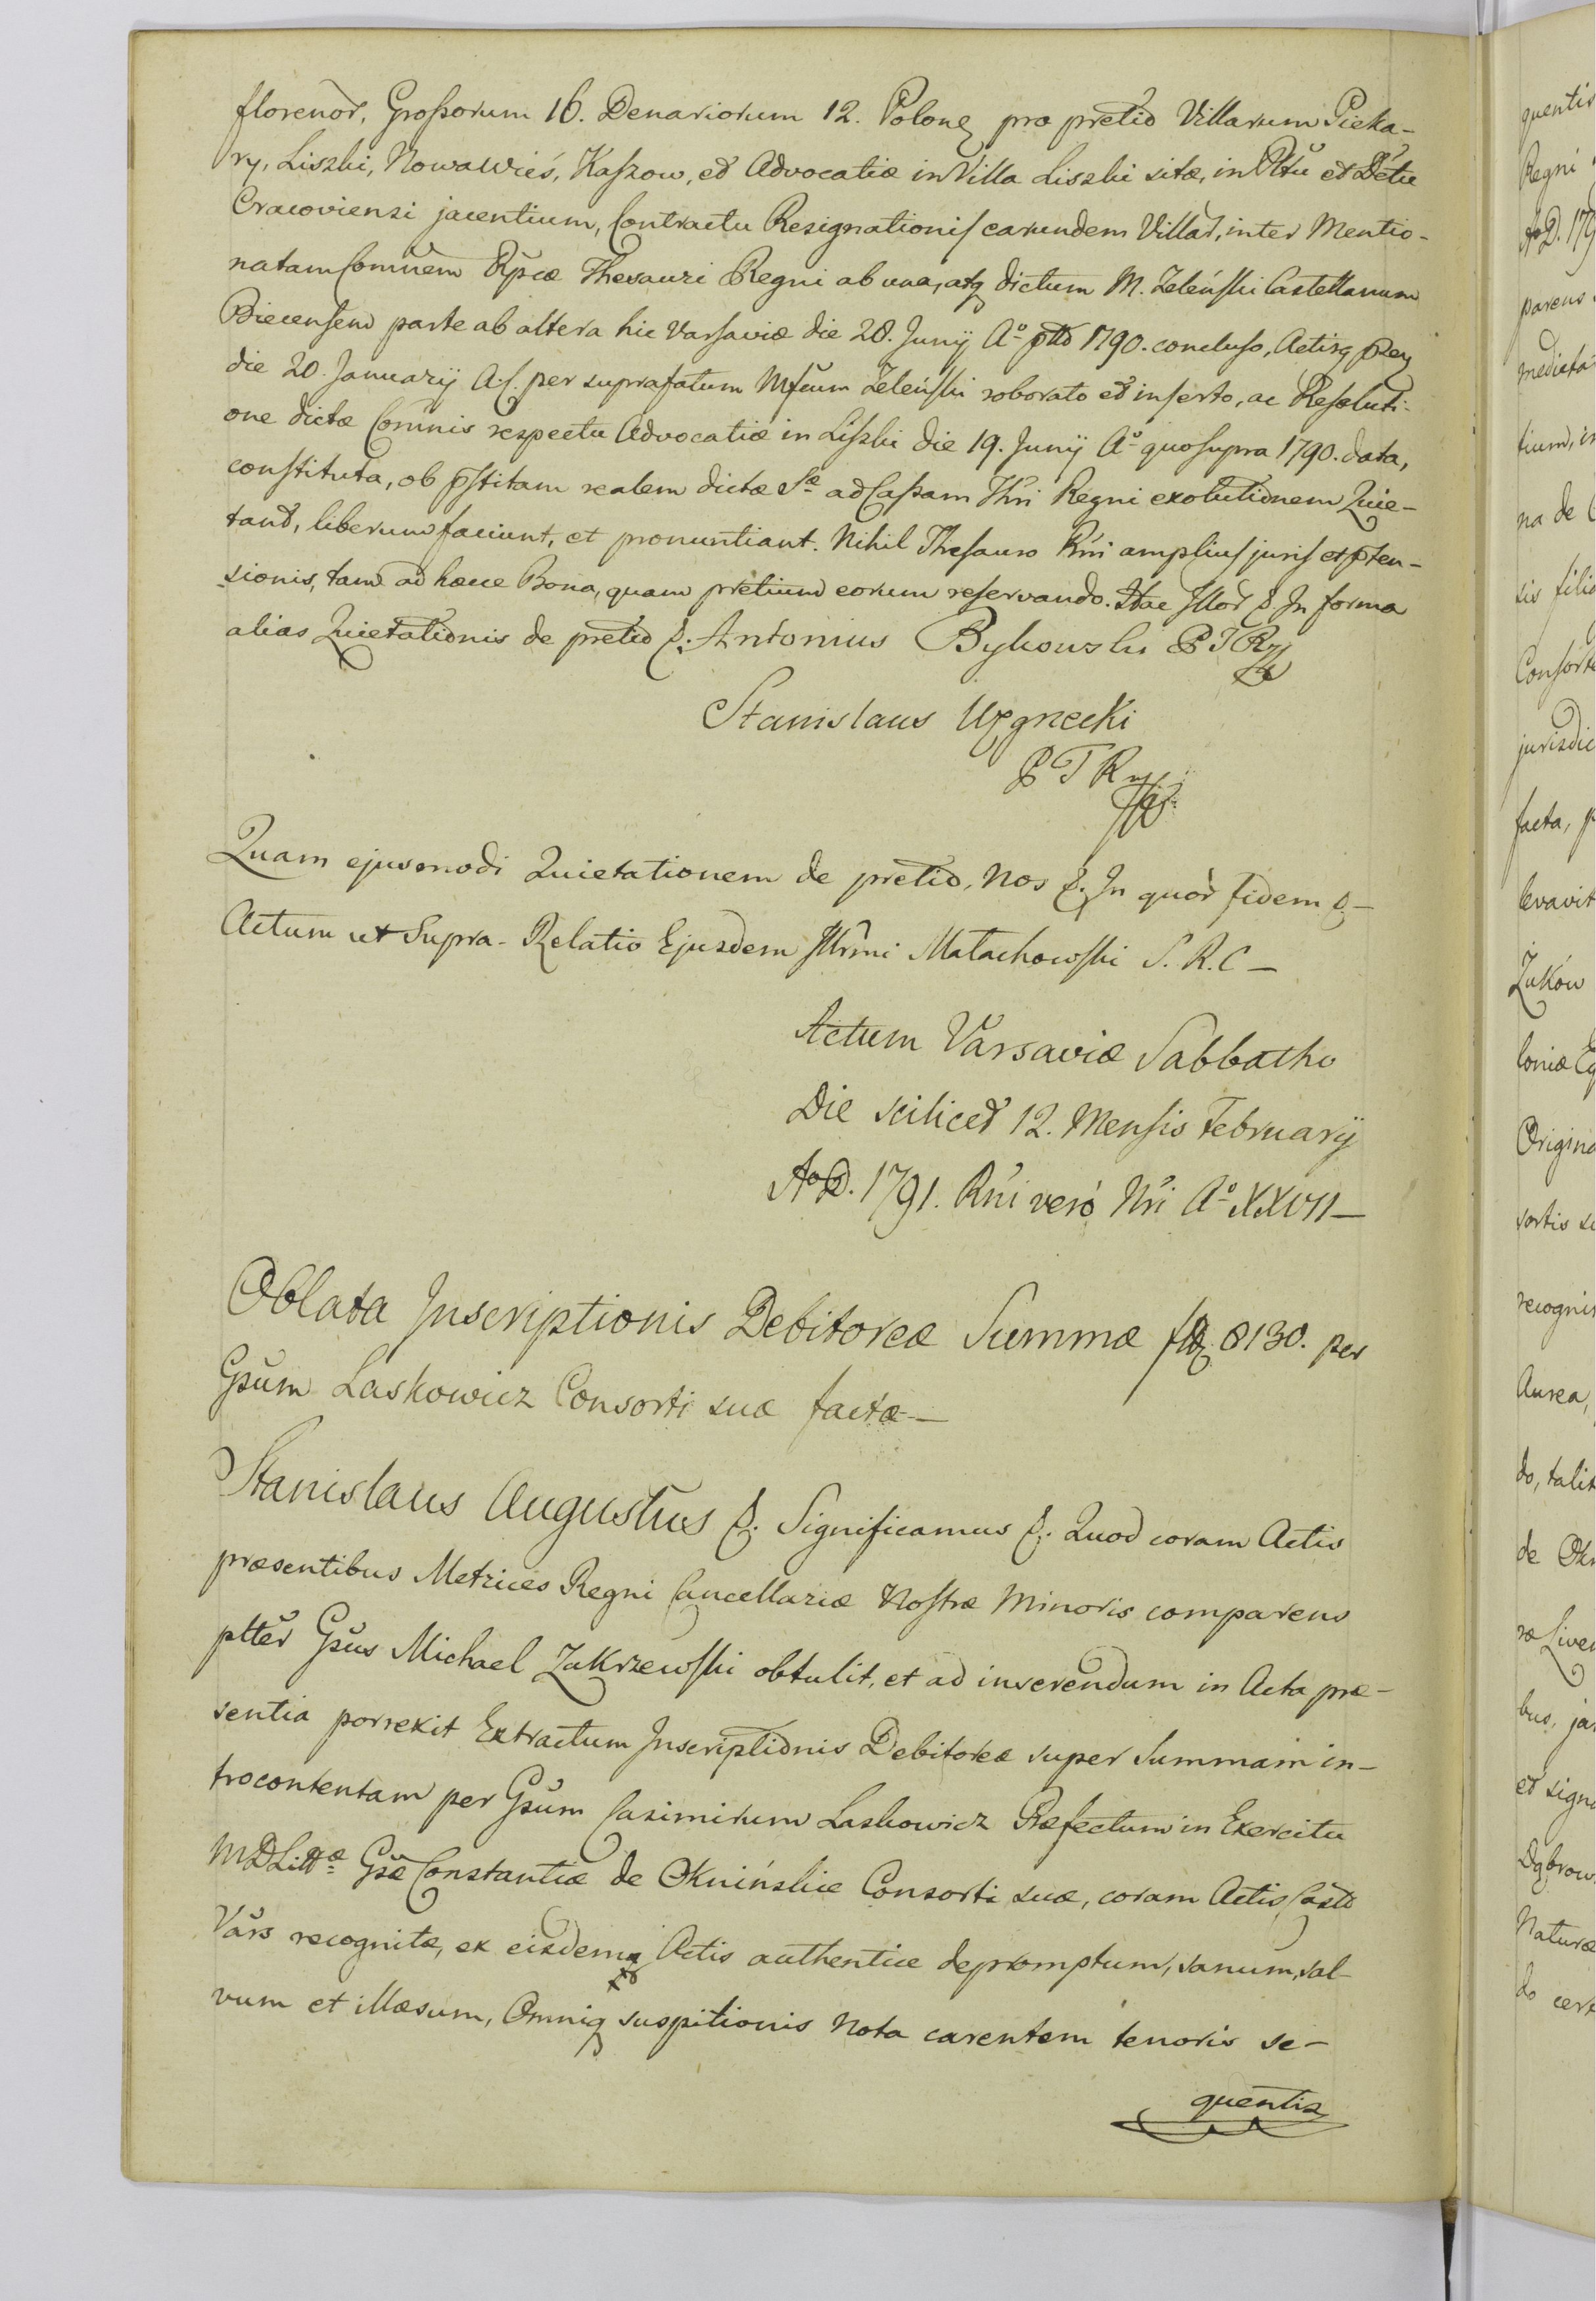 florenor, Großorum 16. Denariorum 12. Polonq pro pretio Villarum Pieka-
ry, Liszki, Nowawieś, Kaſzow, et Advocatiæ in Villa Liszki sitæ, in Pltu et Dctu
Cracoviensi jacentium, Contractu Resignationis earundem Villar, inter Mentio-
natam Comnem Œpicæ Thesauri Regni ab una, atq dictum M. Zeleńſki Castellanum
Biecenſem parte ab altera hic Varſaviæ die 28. Junij Aº ptto 1790. concluſo, Actisq
die 20. Januarij A. C. per suprafatum Mſcum Zeleńſki roborato et inſerto, ac Reſoluti-
one dictæ Comnis respectu Advocatiæ in Liſzki die 19. Junij Aº quo ſupra 1790. data,
conſtituta, ob pſtitam realem dictæ Sæ ad Caßam Thri Regni exolutionem Quie-
tant, liberum faciunt, et pronuntiant. Nihil Theſauro Rni amplius juris et pten-
sionis, tam ad hæce Bona, quam pretium eorum reſervando. Hac Illor & In forma
alias Quietationis de pretio &. Antonius Bykowski P T R
Stanislaus Węgrzecki
P T R
Quam ejusmodi Quietationem de pretio, Nos &. In quor fidem &-
Actum ut Supra - Relatio Ejusdem Illrmi Małachowſki S. R. C -
Actum Varsaviæ Sabbatho
Die scilicet 12. Menſis Februarij
Ao D. 1791. Rni vero Nri Aº XXVII -
Oblata Inscriptionis Debitoreæ Summæ 8130. per
Gsum Laskowicz Consorti suæ factæ -
Stanislaus Augustus &. Significamus &. Quod coram Actis
præsentibus Metrices Regni Cancellariæ Noſtræ Minoris comparens
pltter Gsus Michael Zakrzewſki obtulit, et ad inserendum in Acta præ-
sentia porrexit Extractum Inscriptionis Debitoreæ super Summam in-
trocontentam per Gsum Casimirum Laskowicz Præfectum in Exercitu
M D Littæ Gsæ Constantiæ de Oknińskie Consorti suæ, coram Actis Castr
Vars recognitæ, ex eisdemq Actis authentice depromptum, sanum, sal-
vum et illæsum, Omniq suspitionis nota carentem tenoris se-
quentis
quentis
Regni
Ao D. 179
parens
medieta
tium, in
na de
sis filio
Conſorte
jurisdic
facta, p
levavit
Żuków
loniæ
Origina
sortis
recognis
Aurea,
do, talit
de Okn
ræ Liven
bus, ja
et signa
Dąbrow
Naturæ
do cert